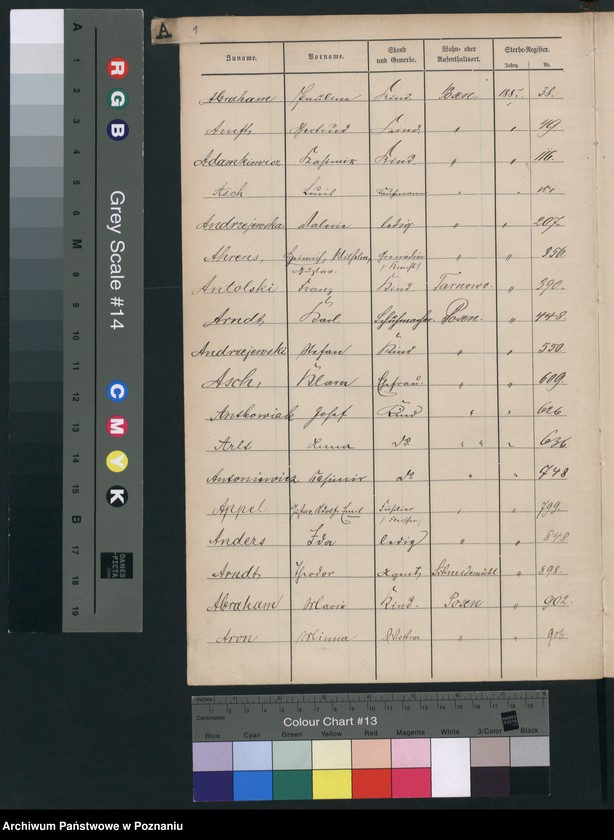 A 1
Zuname. Vorname. Stand und Gewerbe. Wohn- oder Aufenthaltsort. Sterbe-Register. Jahrg. Nr.
Abraham Paulina Kind Posen 1887. 38.
Gertrud Kind " " 49.
Adamkiewicz Kasimir Kind " " 116.
Asch Louis Kaufmann " "
Andrzejewska Valerie ledig " " 207.
Ahrens, Heinrich, Wilhelm, Grenadier " " 350.
Gustav. /Knecht/
Antolski Franz Kind Tarnowo " 390.
Arndt Karl Schuhmacher Posen " 448.
Andrzejewski Stefan Kind " " 550.
Asch, Klara Ehefrau " " 609.
Antkowiak Josef Kind " " 626
Arlt Anna do " " " 636
Antoniewicz Kasimir do " " 748
Appel Gustav Adolf Emil Füsilier " " 799.
Anders Ida ledig " " 848
Arndt Theodor Agent Schneidemühl " 898.
Abraham Marie Kind. Posen " 902
Aron Minna Wittwe " " 906.
A 1 2 3 4 5 6 M 8 9 10 11 12 13 14 15 B 17 18 19
R G B
Grey Scale #14
C M Y K
DANES PICTA
Inches
Centimetres
Colour Chart #13
Blue Cyan Green Yellow Red Magenta White 3/Color Black
Archiwum Państwowe w Poznaniu